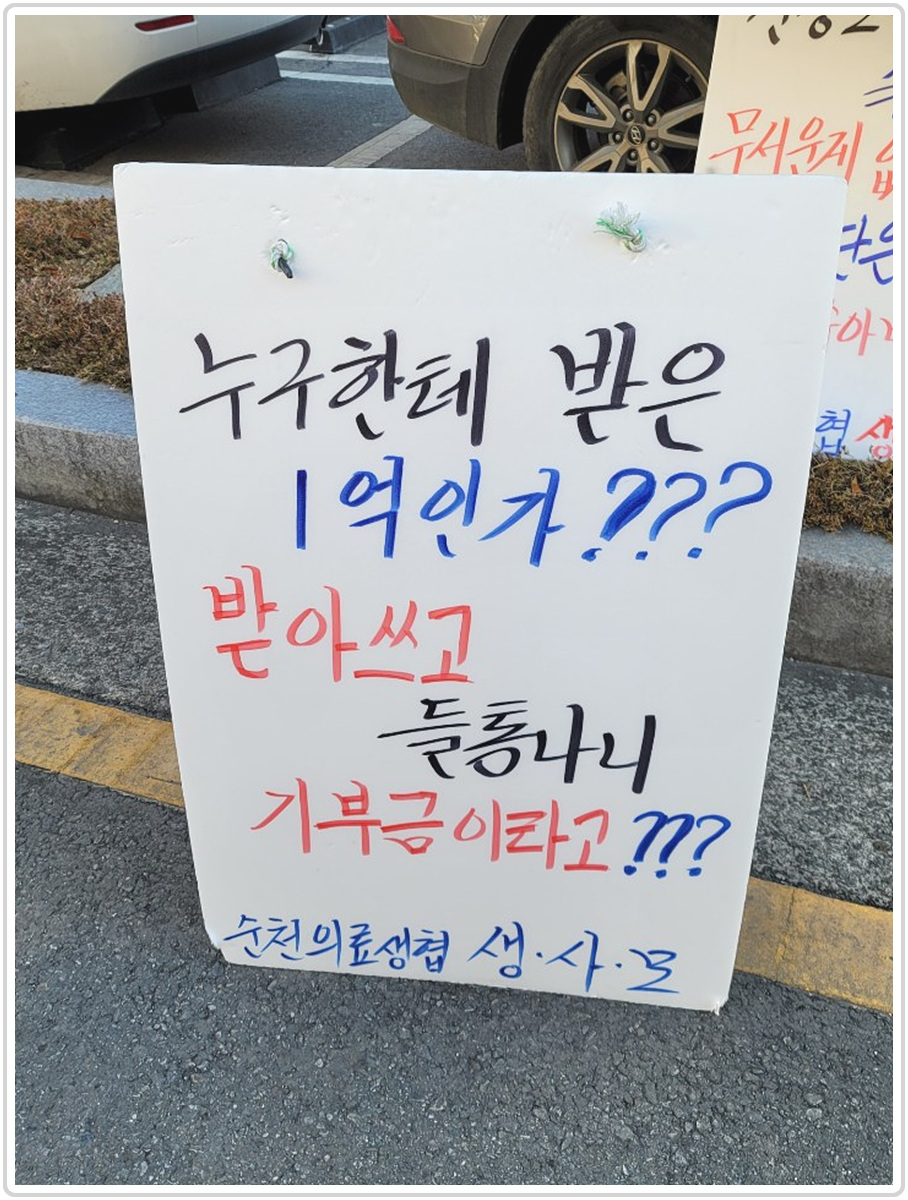 누구한테 받은
1억인가???
받아쓰고
들통나니
기부금이라고???
순천의료생협 생·사·모
무서운지
단은
협 생